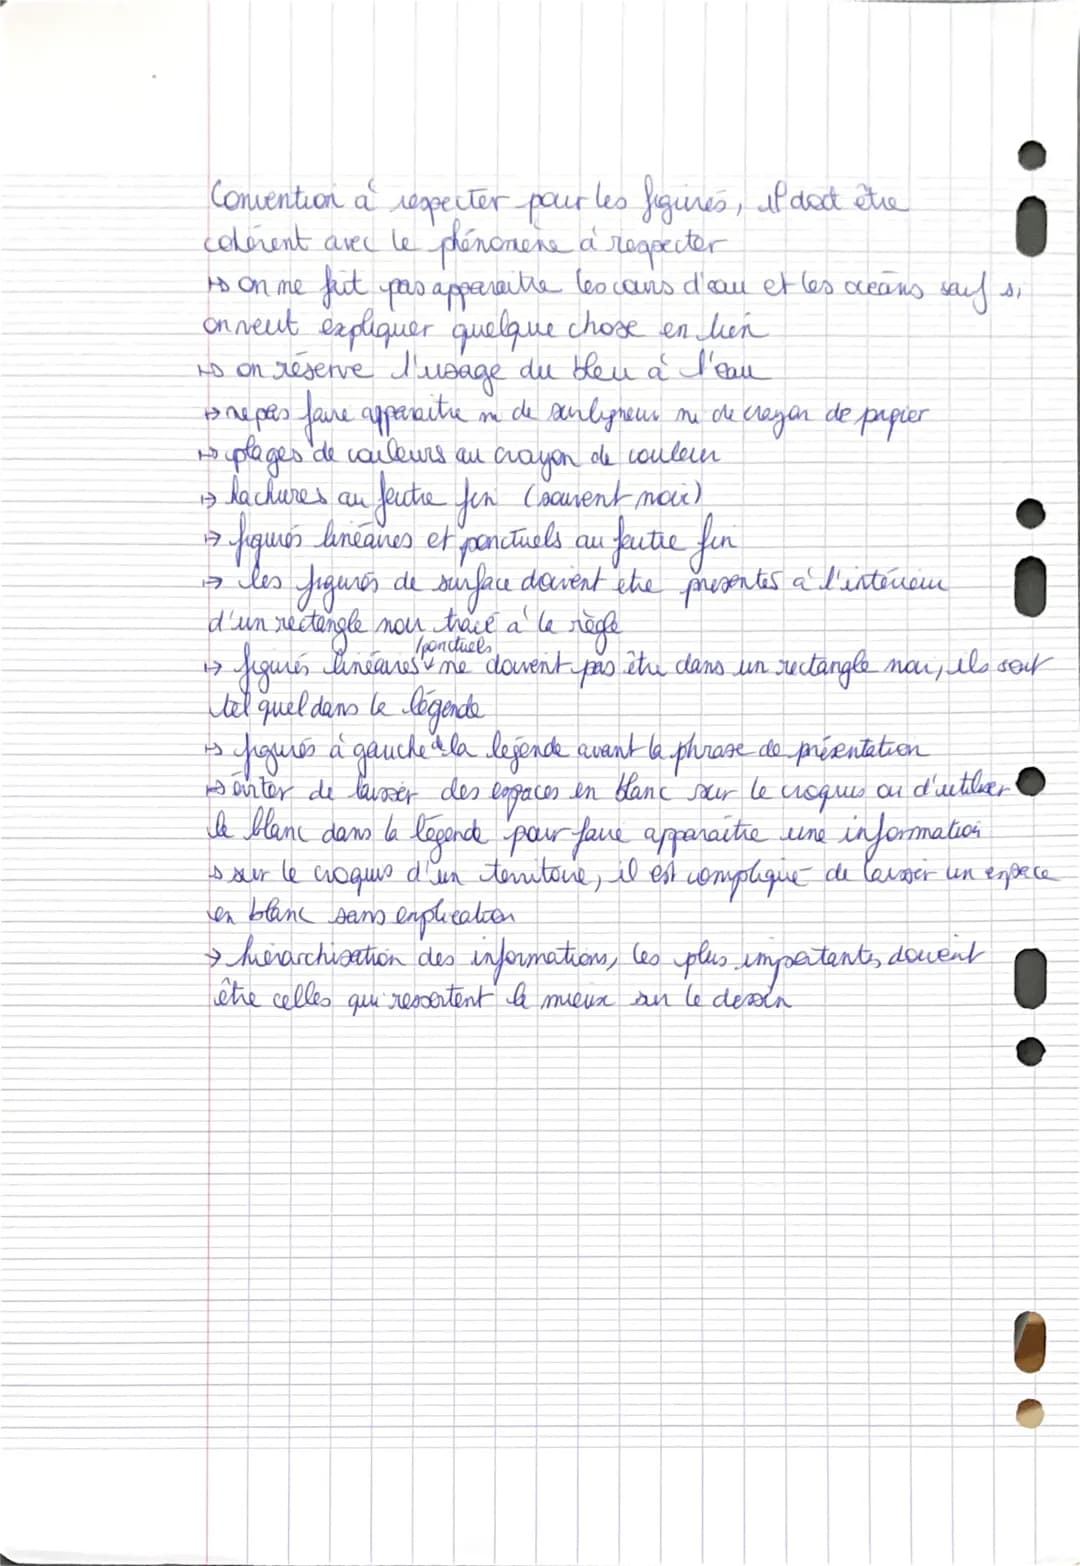 Convention à respecter pour les figurés, il doit être
cohérent avec le phénomène à respecter
↳ on ne fait pas apparaître les cours d'eau et les océans sauf si
on veut expliquer quelque chose en lien
↳ on réserve l'usage du bleu à l'eau
↳ ne pas faire apparaitre ni de surligneur ni de crayon de papier
↳ plages de couleurs au crayon de couleur
↳ hachures au feutre fin (souvent noir)
↳ figurés linéaires et ponctuels au feutre fin
↳ les figurés de surface doivent être présentés à l'intérieur
d'un rectangle noir tracé à la règle
↳ figurés linéaires /ponctuels ne doivent pas être dans un rectangle noir, ils sont
tel quel dans la légende
↳ figurés à gauche de la légende avant la phrase de présentation
↳ éviter de laisser des espaces en blanc sur le croquis ou d'utiliser
le blanc dans la légende pour faire apparaître une information
↳ sur le croquis d'un territoire, il est compliqué de laisser un espace
en blanc sans explication
→ hiérarchisation des informations, les plus importantes doivent
être celles qui ressortent le mieux sur le dessin